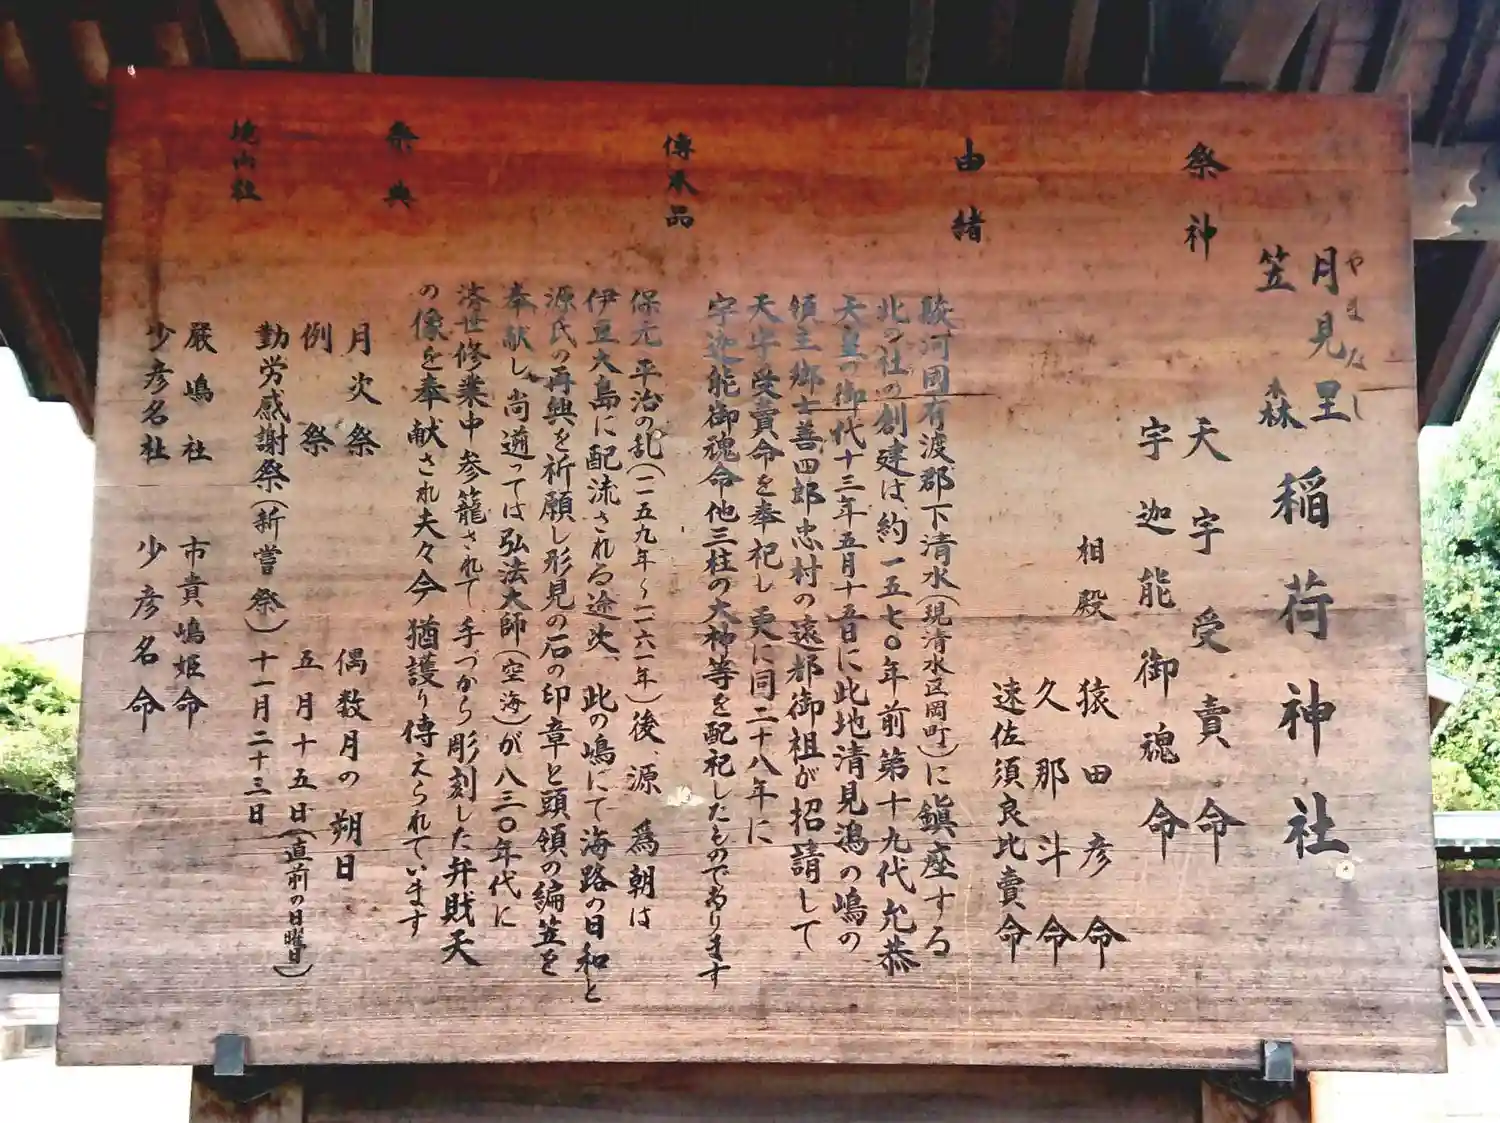 月見里
やまなし
笠森
稲荷神社
祭神
天宇受賣命
宇迦能御魂命
相殿 猿田彦命
久那斗命
速佐須良比賣命
由緒
駿河国有渡郡下清水(現清水区岡町)に鎮座する
此の社の創建は、約一五七〇年前第十九代允恭
天皇の御代十三年五月十五日に此地清見潟の嶋の
領主郷士善四郎忠村の遠都御祖が招請して
天宇受賣命を奉祀し更に同二十八年に
宇迦能御魂命他三柱の大神等を配祀したものであります
傳承品
保元平治の乱(一一五九年〜一一六一年)後、源為朝は
伊豆大島に配流される途次、此の嶋にて海路の日和と
源氏の再興を祈願し形見の石の印章と頭領の編笠を
奉献し、尚遡っては弘法大師(空海)が八三〇年代に
済世修業中参籠されて、手づから彫刻した弁財天
の像を奉献され夫々今猶護り傳えられています
祭典
月次祭 偶数月の朔日
例祭 五月十五日(直前の日曜日)
勤労感謝祭(新嘗祭)十一月二十三日
境内社
厳嶋社 市貴嶋姫命
少彦名社 少彦名命